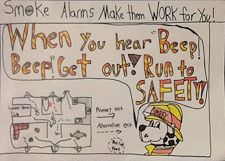 Smoke Alarms Make them WORK for You!
When You hear Beep!
Beep! Get out! Run to
SAFETY!
Primary exit
Alternative exit